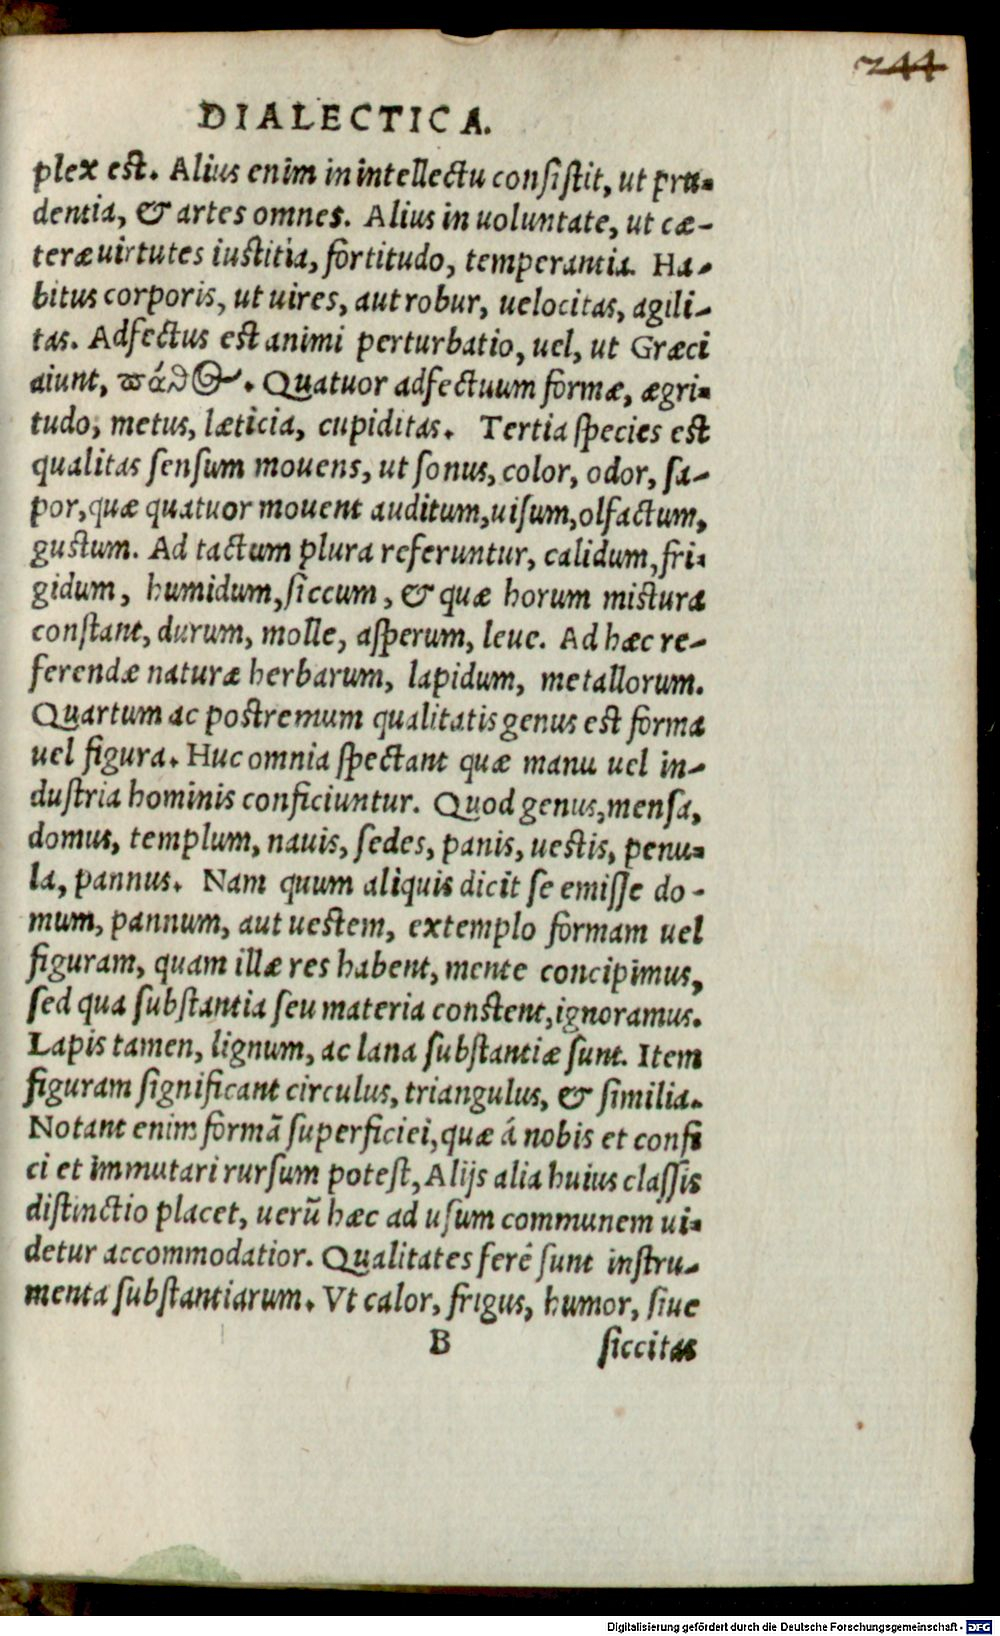 244
DIALECTICA.
plex est. Alius enim in intellectu consistit, ut pru=
dentia, & artes omnes. Alius in uoluntate, ut cæ-
teræ uirtutes iustitia, fortitudo, temperantia. Ha-
bitus corporis, ut uires, aut robur, uelocitas, agili-
tas. Adfectus est animi perturbatio, uel, ut Græci
aiunt, πάθος. Quatuor adfectuum formæ, ægri=
tudo, metus, læticia, cupiditas. Tertia species est
qualitas sensum mouens, ut sonus, color, odor, sa-
por, quæ quatuor mouent auditum, uisum, olfactum,
gustum. Ad tactum plura referuntur, calidum, fri=
gidum, humidum, siccum, & quæ horum mistura
constant, durum, molle, asperum, leue. Ad hæc re-
ferendæ naturæ herbarum, lapidum, metallorum.
Quartum ac postremum qualitatis genus est forma
uel figura. Huc omnia spectant quæ manu uel in-
dustria hominis conficiuntur. Quod genus, mensa,
domus, templum, nauis, sedes, panis, uestis, penu=
la, pannus. Nam quum aliquis dicit se emisse do-
mum, pannum, aut uestem, extemplo formam uel
figuram, quam illæ res habent, mente concipimus,
sed qua substantia seu materia constent, ignoramus.
Lapis tamen, lignum, ac lana substantiæ sunt. Item
figuram significant circulus, triangulus, & similia.
Notant enim formã superficiei, quæ á nobis et confi
ci et immutari rursum potest, Alijs alia huius classis
distinctio placet, uerũ hæc ad usum communem ui=
detur accommodatior. Qualitates ferê sunt instru-
menta substantiarum. Vt calor, frigus, humor, siue
B siccitas
Digitalisierung gefördert durch die Deutsche Forschungsgemeinschaft - DFG